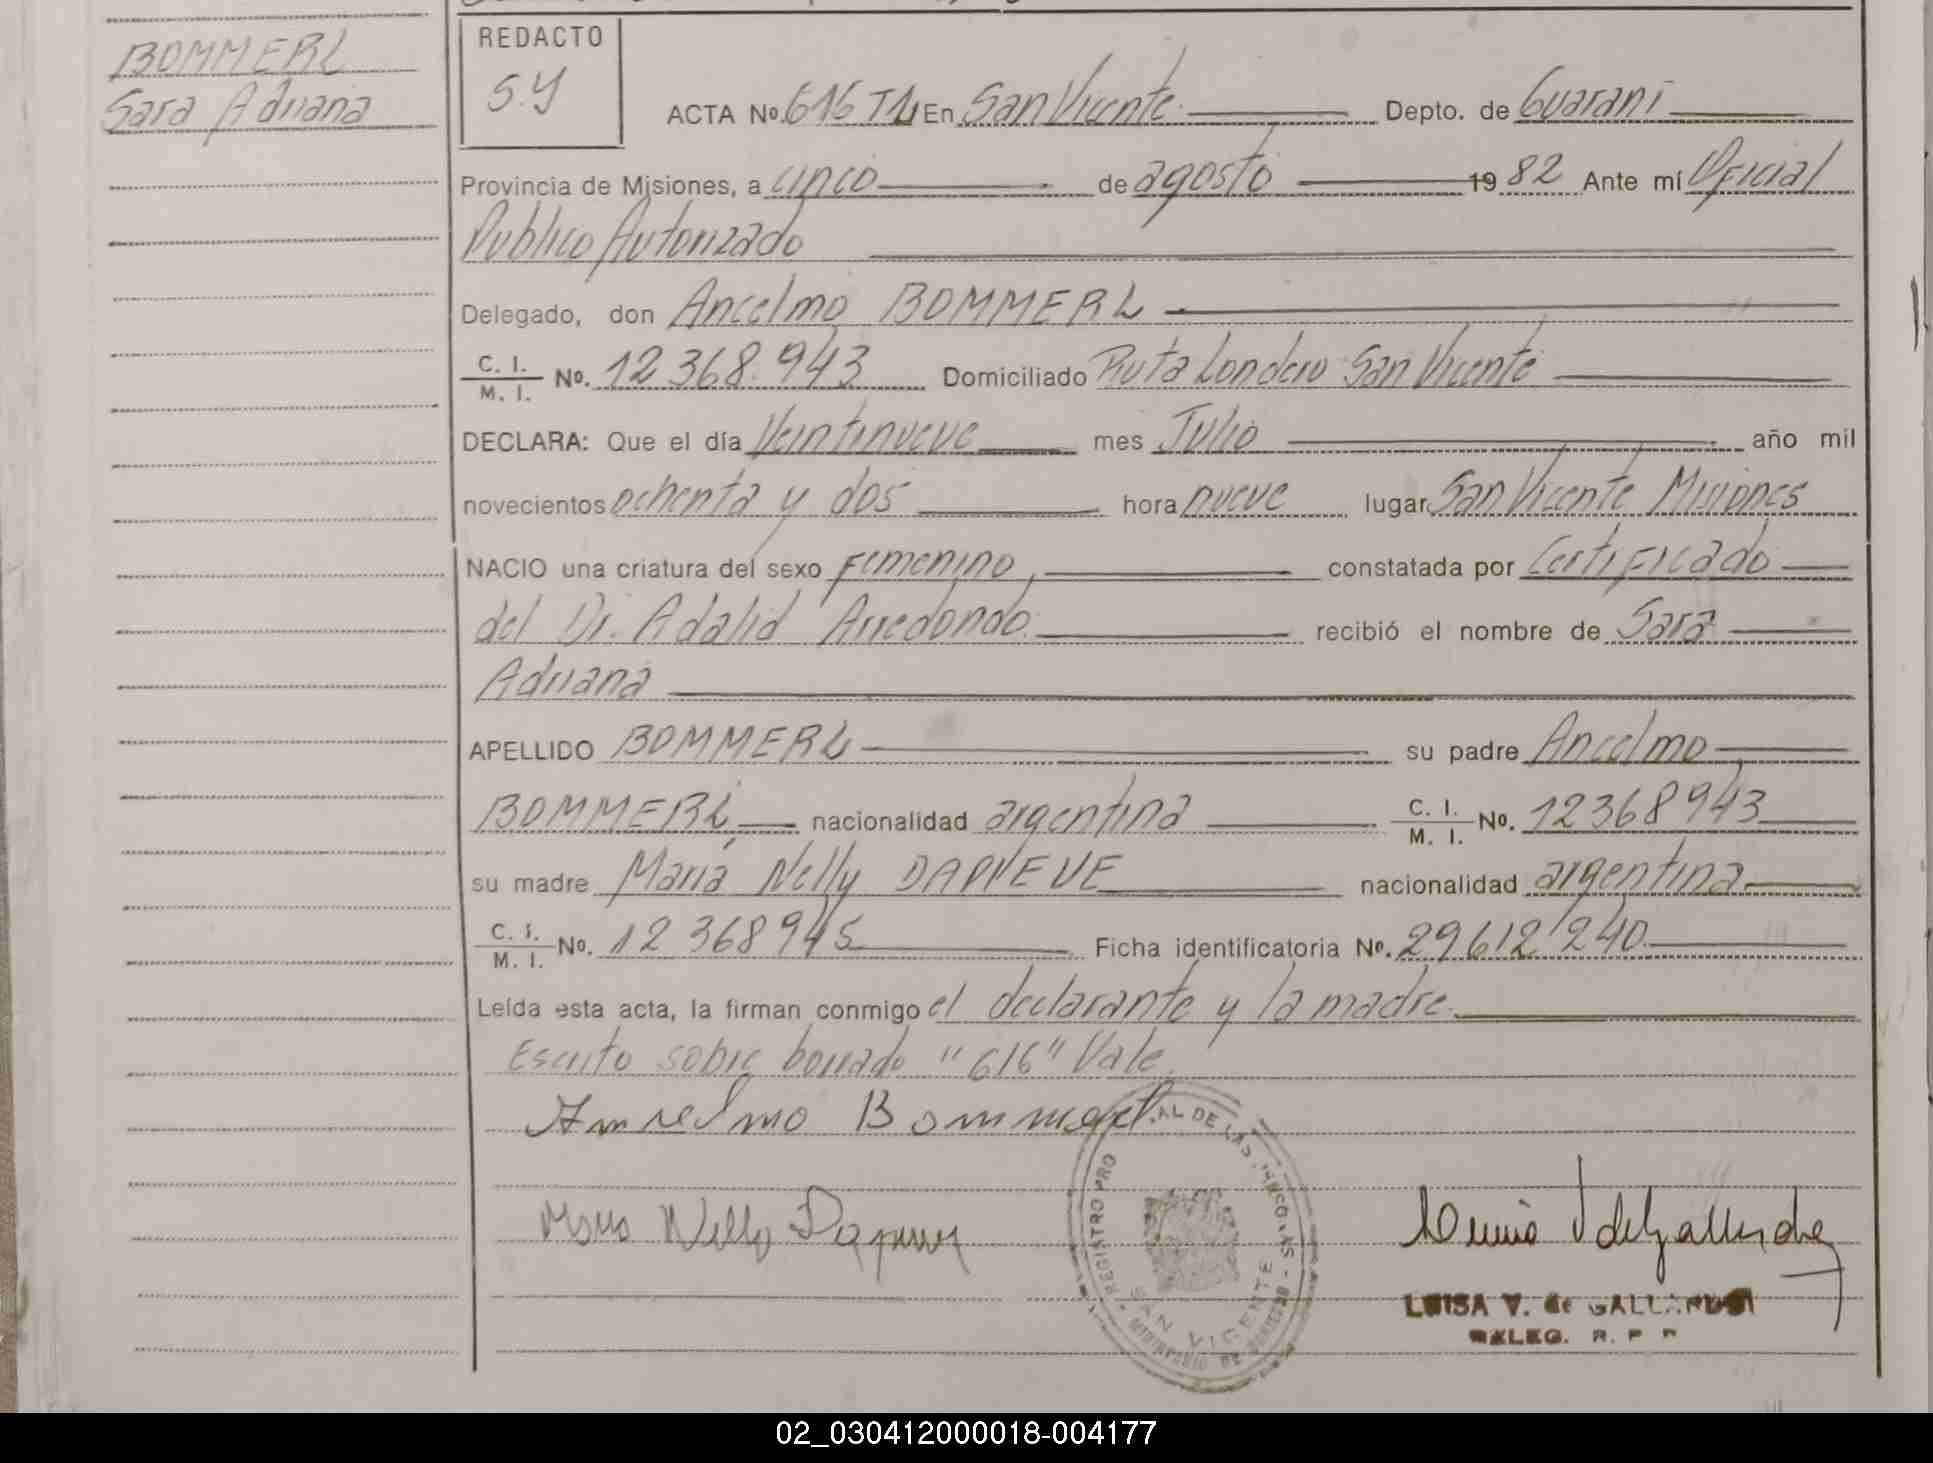 BOMMERL
Sara Adriana
REDACTO
S.Y
ACTA Nº 616 T1J En San Vicente Depto. de Guaraní
Provincia de Misiones, a cinco de agosto 19 82 Ante mí Oficial
Publico Autorizado
Delegado, don Ancelmo BOMMERL
C. I. / M. I. Nº. 12 368.943 Domiciliado Ruta Londero San Vicente
DECLARA: Que el día Veintinueve mes Julio año mil
novecientos ochenta y dos hora nueve lugar San Vicente Misiones
NACIO una criatura del sexo Femenino, constatada por Certificado
del Dr. Adalid Arredondo. recibió el nombre de Sara
Adriana
APELLIDO BOMMERL su padre Ancelmo
BOMMERL nacionalidad argentina C. I. / M. I. Nº. 12368943
su madre María Nelly DAPIEVE nacionalidad argentina
C. I. / M. I. Nº. 12 368945 Ficha identificatoria Nº. 29612240
Leída esta acta, la firman conmigo el declarante y la madre.
Escrito sobre borrado "616" Vale.
Ancelmo Bommerl
Maria Nelly
REGISTRO PRO AL DE LAS PERSONAS
SAN VICENTE
LUISA V. de GALLARDO
DELEG. R. P. P.
02_030412000018-004177